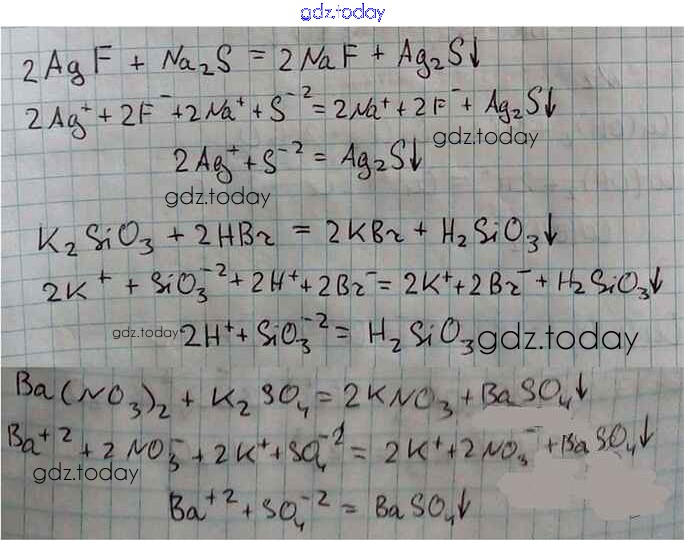 gdz.today
2AgF + Na₂S = 2NaF + Ag₂S↓
2Ag⁺ + 2F⁻ + 2Na⁺ + S⁻² = 2Na⁺ + 2F⁻ + Ag₂S↓
gdz.today
2Ag⁺ + S⁻² = Ag₂S↓
gdz.today
K₂SiO₃ + 2HBr = 2KBr + H₂SiO₃↓
2K⁺ + SiO₃⁻² + 2H⁺ + 2Br⁻ = 2K⁺ + 2Br⁻ + H₂SiO₃↓
gdz.today 2H⁺ + SiO₃⁻² = H₂SiO₃ gdz.today
Ba(NO₃)₂ + K₂SO₄ = 2KNO₃ + BaSO₄↓
Ba⁺² + 2NO₃⁻ + 2K⁺ + SO₄⁻² = 2K⁺ + 2NO₃⁻ + BaSO₄↓
gdz.today
Ba⁺² + SO₄⁻² = BaSO₄↓